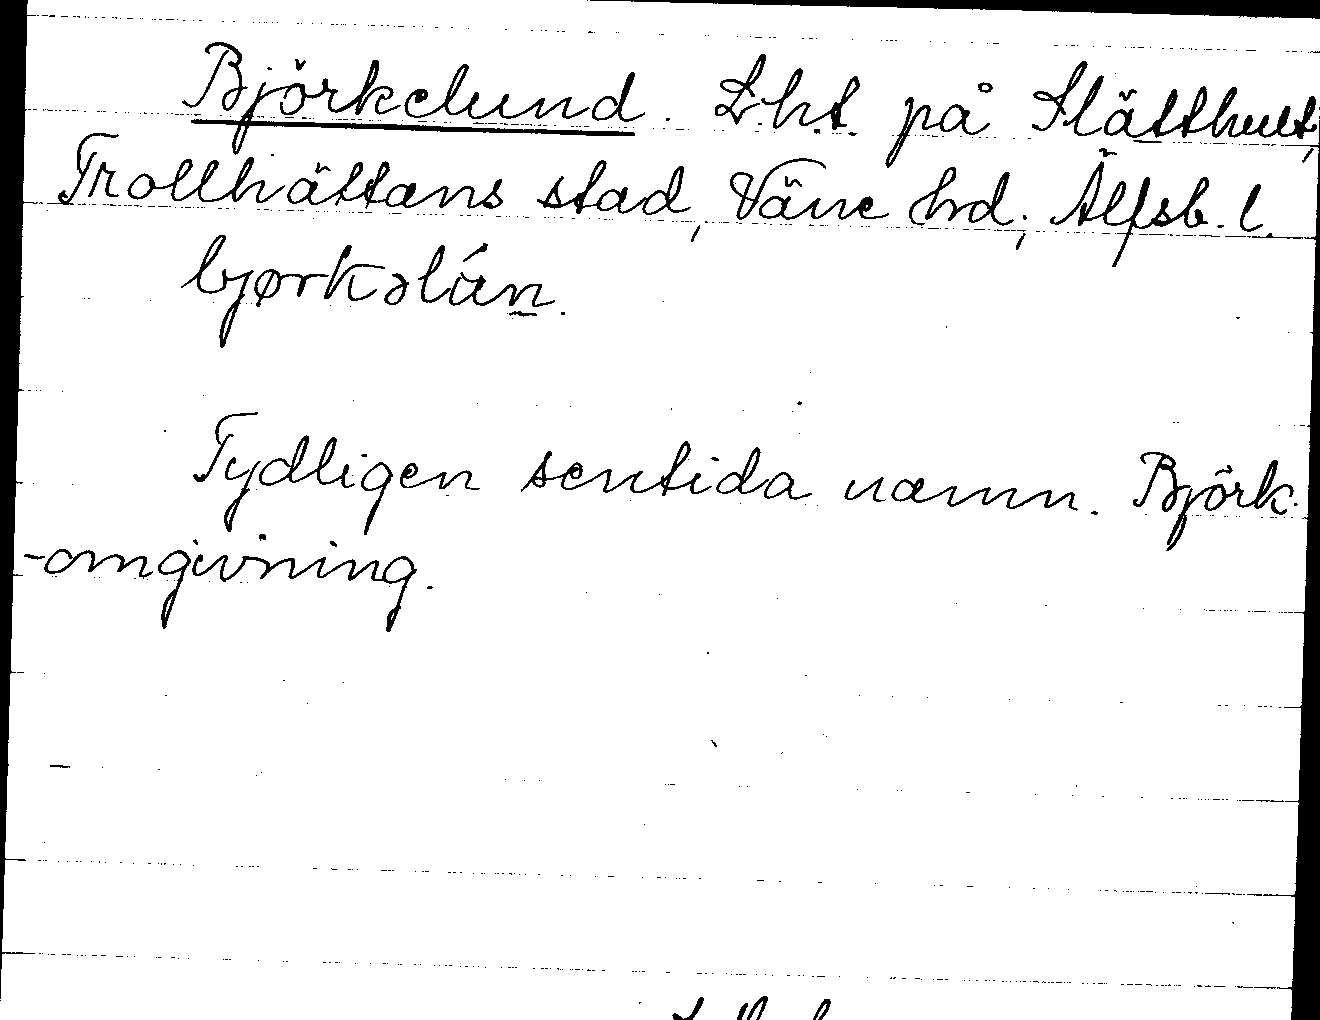 Björkelund. Lht. på Slätthult,
Trollhättans stad, Väne hd; Älfsb. l.
bjørkəlún.
Tydligen sentida namn. Björk-
-omgivning.